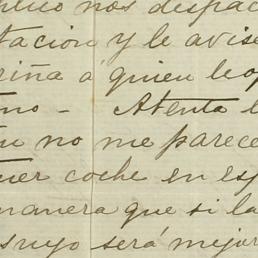 nos despac
tacion y le avise
riña a quien le
mo - Atenta
no me parece
uer coche en esp
manera que si la
suyo será mejor